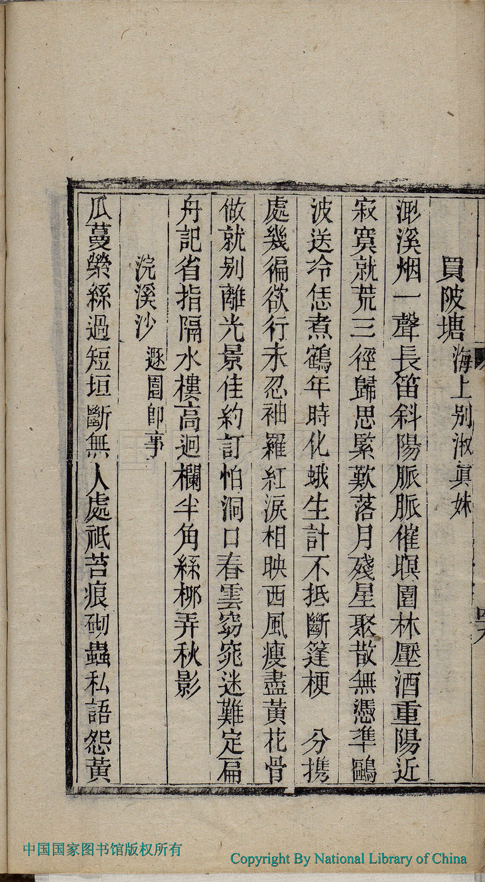 買陂塘 海上别淑真妹
㴑溪烟一聲長笛斜陽脈脈催暝園林壓酒重陽近
寂寞就荒三徑歸思緊歎落月殘星聚散無憑準鷗
波送冷恁煮鶴年時化蛾生計不抵斷篷梗 分携
處幾徧欲行未忍袖羅紅淚相映西風瘦盡黃花骨
做就别離光景佳約訂怕洞口春雲窈窕迷難定扁
舟記省指隔水樓高迴欄半角絲栁弄秋影
浣溪沙 遯園即事
瓜蔓縈絲過短垣斷無人處祗苔痕砌蟲私語怨黃
中国国家图书馆版权所有
Copyright By National Library of China